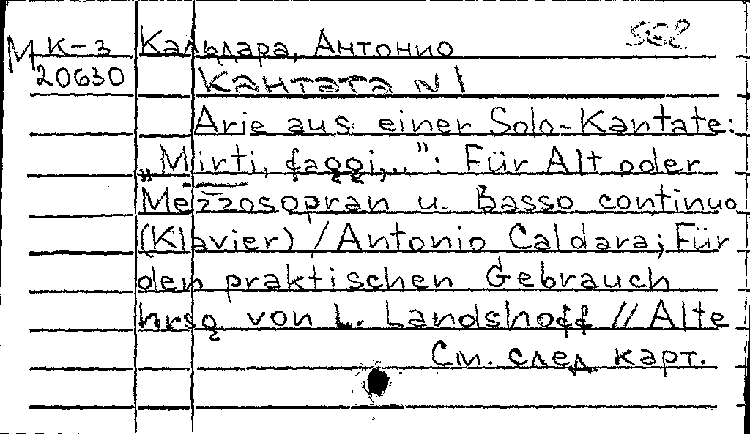 М К-3 Кальдара, Антонио
20630 Кантата N 1
Arie aus einer Solo-Kantate:
„Mirti, faggi,..”: Für Alt oder
Mezzosopran u. Basso continuo
(Klavier) / Antonio Caldara; Für
den praktischen Gebrauch
hrsg von L. Landshoff // Alte
См. след карт.